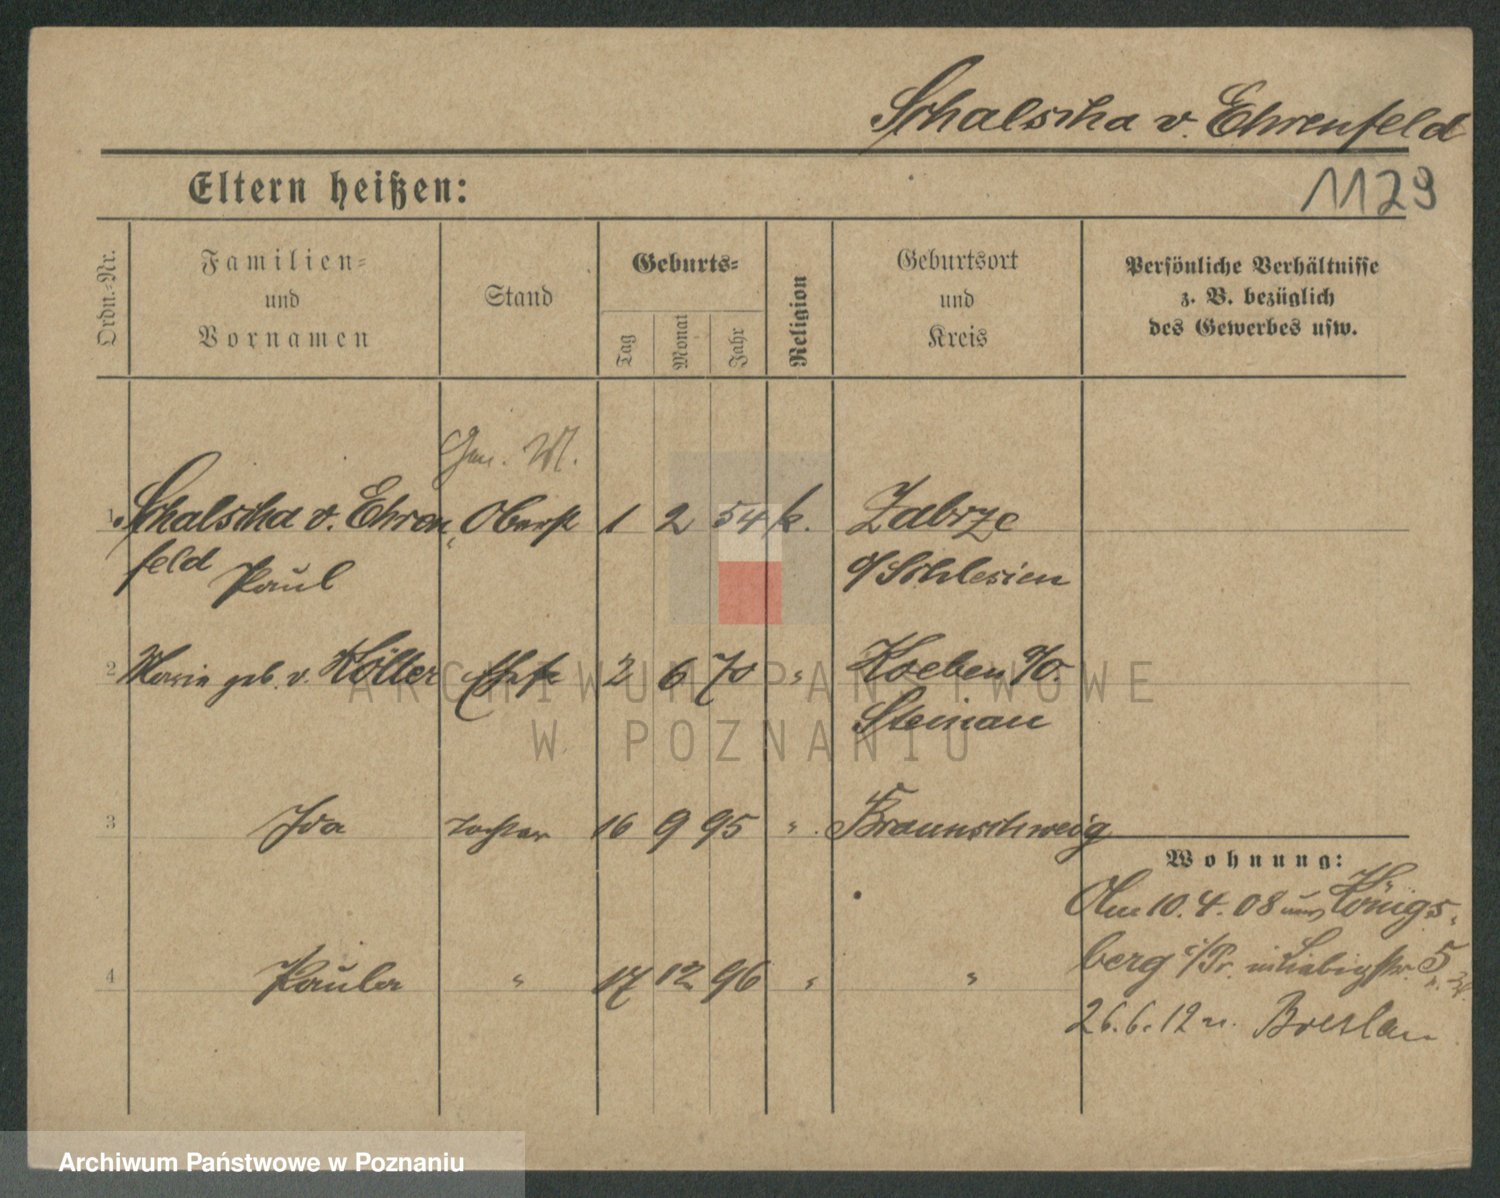 Schalscha v. Ehrenfeld
Eltern heißen:
1129
Ordn.-Nr.
Familien- und Vornamen
Stand
Geburts-
Tag
Monat
Jahr
Religion
Geburtsort und Kreis
Persönliche Verhältnisse
z. B. bezüglich
des Gewerbes usw.
Gen. M.
1 Schalscha v. Ehren Oberst 1 2 54 k. Zabrze
feld Paul O/Schlesien
2 Marie geb. v. Köller Ehefr 2 6 70 " Koeben a/O.
Steinau
3 Ida Tochter 16 9 95 " Braunschweig
Wohnung:
Am 10.4.08 aus Königs-
4 Paula " 17 12 96 " "
berg i/Pr. in Liebigstr. 5
26.6.12 n. Breslau
ARCHIWUM PAŃSTWOWE
W POZNANIU
Archiwum Państwowe w Poznaniu